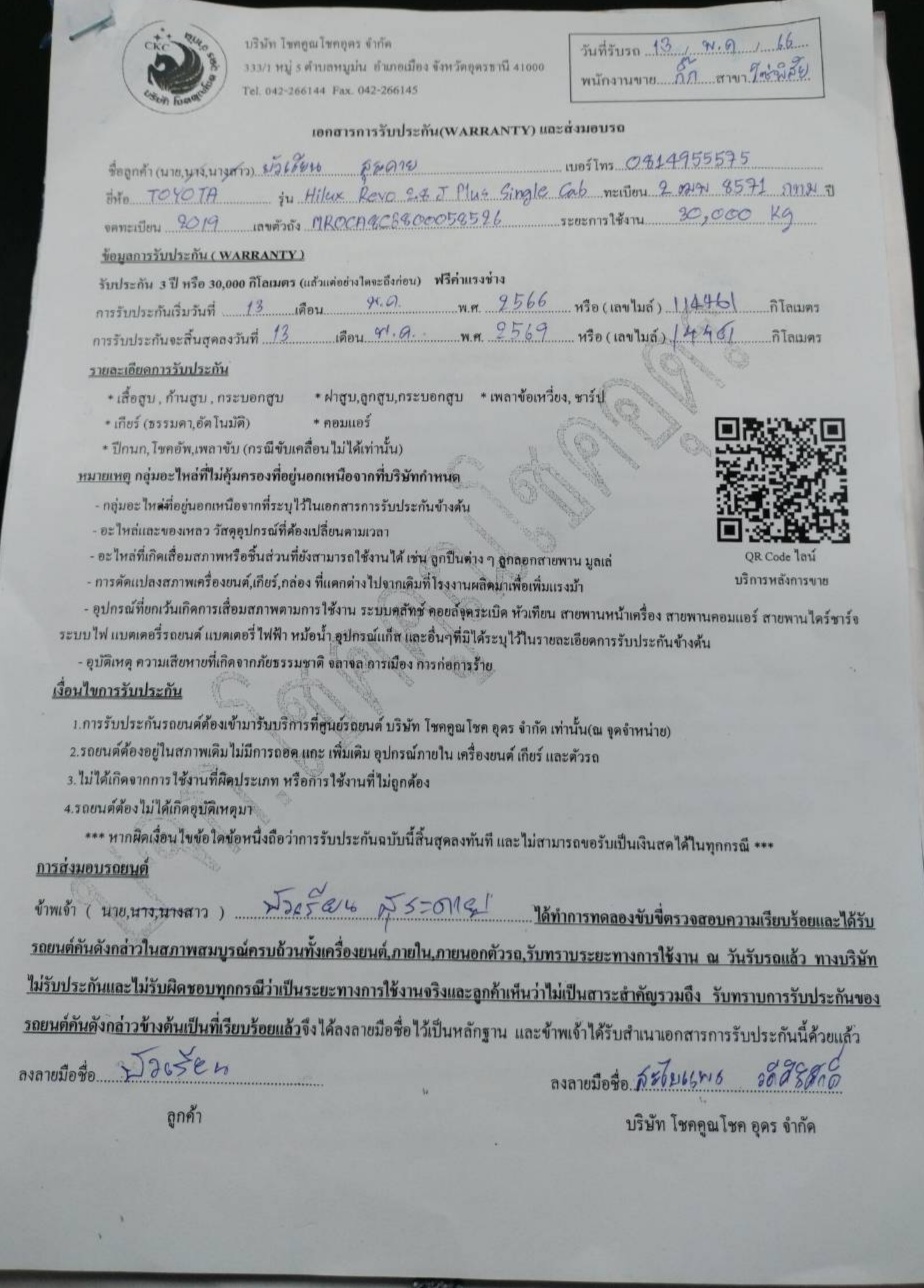 CKC
บริษัท โชคคูณโชคอุดร จำกัด
333/1 หมู่ 5 ตำบลหมูม่น อำเภอเมือง จังหวัดอุดรธานี 41000
Tel. 042-266144 Fax. 042-266145
วันที่รับรถ 13 / พ.ค / 66
พนักงานขาย กิ๊ก สาขา โซ่พิสัย
เอกสารการรับประกัน(WARRANTY) และส่งมอบรถ
ชื่อลูกค้า (นาย,นาง,นางสาว) บัวเรียน เบอร์โทร 0814955575
ยี่ห้อ TOYOTA รุ่น Hilux Revo 2.8 J Plus Single Cab ทะเบียน 2 ฒมพ 8571 กทม ปี
จดทะเบียน 2019 เลขตัวถัง ระยะการใช้งาน 30,000 Kg
ข้อมูลการรับประกัน ( WARRANTY )
รับประกัน 3 ปี หรือ 30,000 กิโลเมตร (แล้วแต่อย่างใดจะถึงก่อน) ฟรีค่าแรงช่าง
การรับประกันเริ่มวันที่ 13 เดือน พ.ค. พ.ศ. 2566 หรือ (เลขไมล์) กิโลเมตร
การรับประกันจะสิ้นสุดลงวันที่ 13 เดือน พ.ค. พ.ศ. 2569 หรือ (เลขไมล์) กิโลเมตร
รายละเอียดการรับประกัน
* เสื้อสูบ , ก้านสูบ , กระบอกสูบ * ฝาสูบ,ลูกสูบ,กระบอกสูบ * เพลาข้อเหวี่ยง, ชาร์ป
* เกียร์ (ธรรมดา,อัตโนมัติ) * คอมแอร์
* ปีกนก,โชคอัพ,เพลาขับ (กรณีขับเคลื่อนไม่ได้เท่านั้น)
หมายเหตุ กลุ่มอะไหล่ที่ไม่คุ้มครองที่อยู่นอกเหนือจากที่บริษัทกำหนด
- กลุ่มอะไหล่ที่อยู่นอกเหนือจากที่ระบุไว้ในเอกสารการรับประกันข้างต้น
- อะไหล่และของเหลว วัสดุอุปกรณ์ที่ต้องเปลี่ยนตามเวลา
- อะไหล่ที่เกิดเสื่อมสภาพหรือชิ้นส่วนที่ยังสามารถใช้งานได้ เช่น ลูกปืนต่าง ๆ ลูกลอกสายพาน มูลเล่
- การดัดแปลงสภาพเครื่องยนต์,เกียร์,กล่อง ที่แตกต่างไปจากเดิมที่โรงงานผลิตมาเพื่อเพิ่มแรงม้า
QR Code ไลน์
บริการหลังการขาย
- อุปกรณ์ที่ยกเว้นเกิดการเสื่อมสภาพตามการใช้งาน ระบบคลัทช์ คอยล์จุดระเบิด หัวเทียน สายพานหน้าเครื่อง สายพานคอมแอร์ สายพานไดร์ชาร์จ
ระบบไฟ แบตเตอรี่รถยนต์ แบตเตอรี่ไฟฟ้า หม้อน้ำ อุปกรณ์แก๊ส และอื่นๆที่มิได้ระบุไว้ในรายละเอียดการรับประกันข้างต้น
- อุบัติเหตุ ความเสียหายที่เกิดจากภัยธรรมชาติ จลาจล การเมือง การก่อการร้าย
เงื่อนไขการรับประกัน
1.การรับประกันรถยนต์ต้องเข้ามารับบริการที่ศูนย์รถยนต์ บริษัท โชคคูณโชค อุดร จำกัด เท่านั้น(ณ จุดจำหน่าย)
2.รถยนต์ต้องอยู่ในสภาพเดิม ไม่มีการถอด แกะ เพิ่มเติม อุปกรณ์ภายใน เครื่องยนต์ เกียร์ และตัวรถ
3.ไม่ได้เกิดจากการใช้งานที่ผิดประเภท หรือการใช้งานที่ไม่ถูกต้อง
4.รถยนต์ต้องไม่ได้เกิดอุบัติเหตุมา
*** หากผิดเงื่อนไขข้อใดข้อหนึ่งถือว่าการรับประกันฉบับนี้สิ้นสุดลงทันที และไม่สามารถขอรับเป็นเงินสดได้ในทุกกรณี ***
การส่งมอบรถยนต์
ข้าพเจ้า ( นาย,นาง,นางสาว ) บัวเรียน ได้ทำการทดลองขับขี่ตรวจสอบความเรียบร้อยและได้รับ
รถยนต์คันดังกล่าวในสภาพสมบูรณ์ครบถ้วนทั้งเครื่องยนต์,ภายใน,ภายนอกตัวรถ,รับทราบระยะทางการใช้งาน ณ วันรับรถแล้ว ทางบริษัท
ไม่รับประกันและไม่รับผิดชอบทุกกรณีว่าเป็นระยะทางการใช้งานจริงและลูกค้าเห็นว่าไม่เป็นสาระสำคัญรวมถึง รับทราบการรับประกันของ
รถยนต์คันดังกล่าวข้างต้นเป็นที่เรียบร้อยแล้วจึงได้ลงลายมือชื่อไว้เป็นหลักฐาน และข้าพเจ้าได้รับสำเนาเอกสารการรับประกันนี้ด้วยแล้ว
ลงลายมือชื่อ บัวเรียน ลงลายมือชื่อ
ลูกค้า
บริษัท โชคคูณโชค อุดร จำกัด